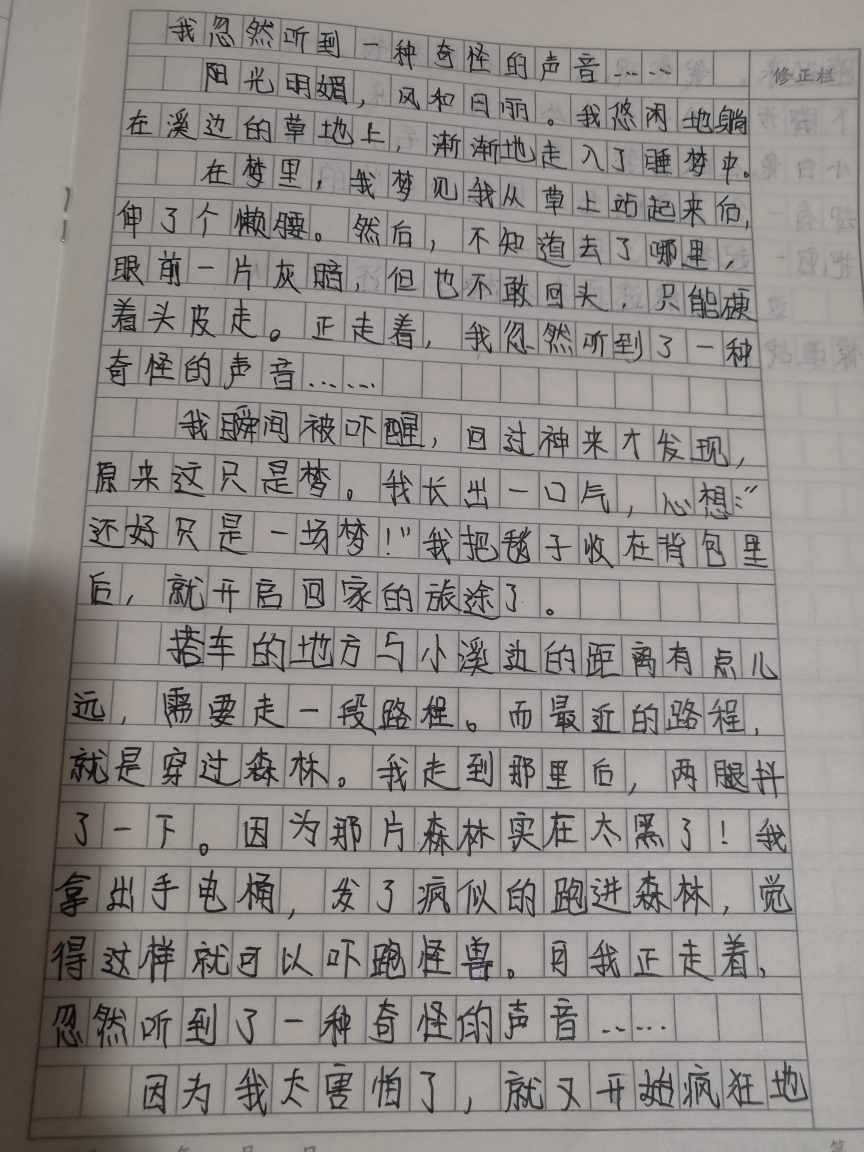 我忽然听到一种奇怪的声音……
修正栏
阳光明媚，风和日丽。我悠闲地躺
在溪边的草地上，渐渐地走入了睡梦中。
在梦里，我梦见我从草上站起来后，
伸了个懒腰。然后，不知道去了哪里，
眼前一片灰暗，但也不敢回头，只能硬
着头皮走。正走着，我忽然听到了一种
奇怪的声音……
我瞬间被吓醒，回过神来才发现，
原来这只是梦。我长出一口气，心想：“
还好只是一场梦！”我把毯子收在背包里
后，就开启回家的旅途了。
搭车的地方与小溪边的距离有点儿
远，需要走一段路程。而最近的路程，
就是穿过森林。我走到那里后，两腿抖
了一下。因为那片森林实在太黑了！我
拿出手电桶，发了疯似的跑进森林，觉
得这样就可以吓跑怪兽。可我正走着，
忽然听到了一种奇怪的声音……
因为我太害怕了，就又开始疯狂地